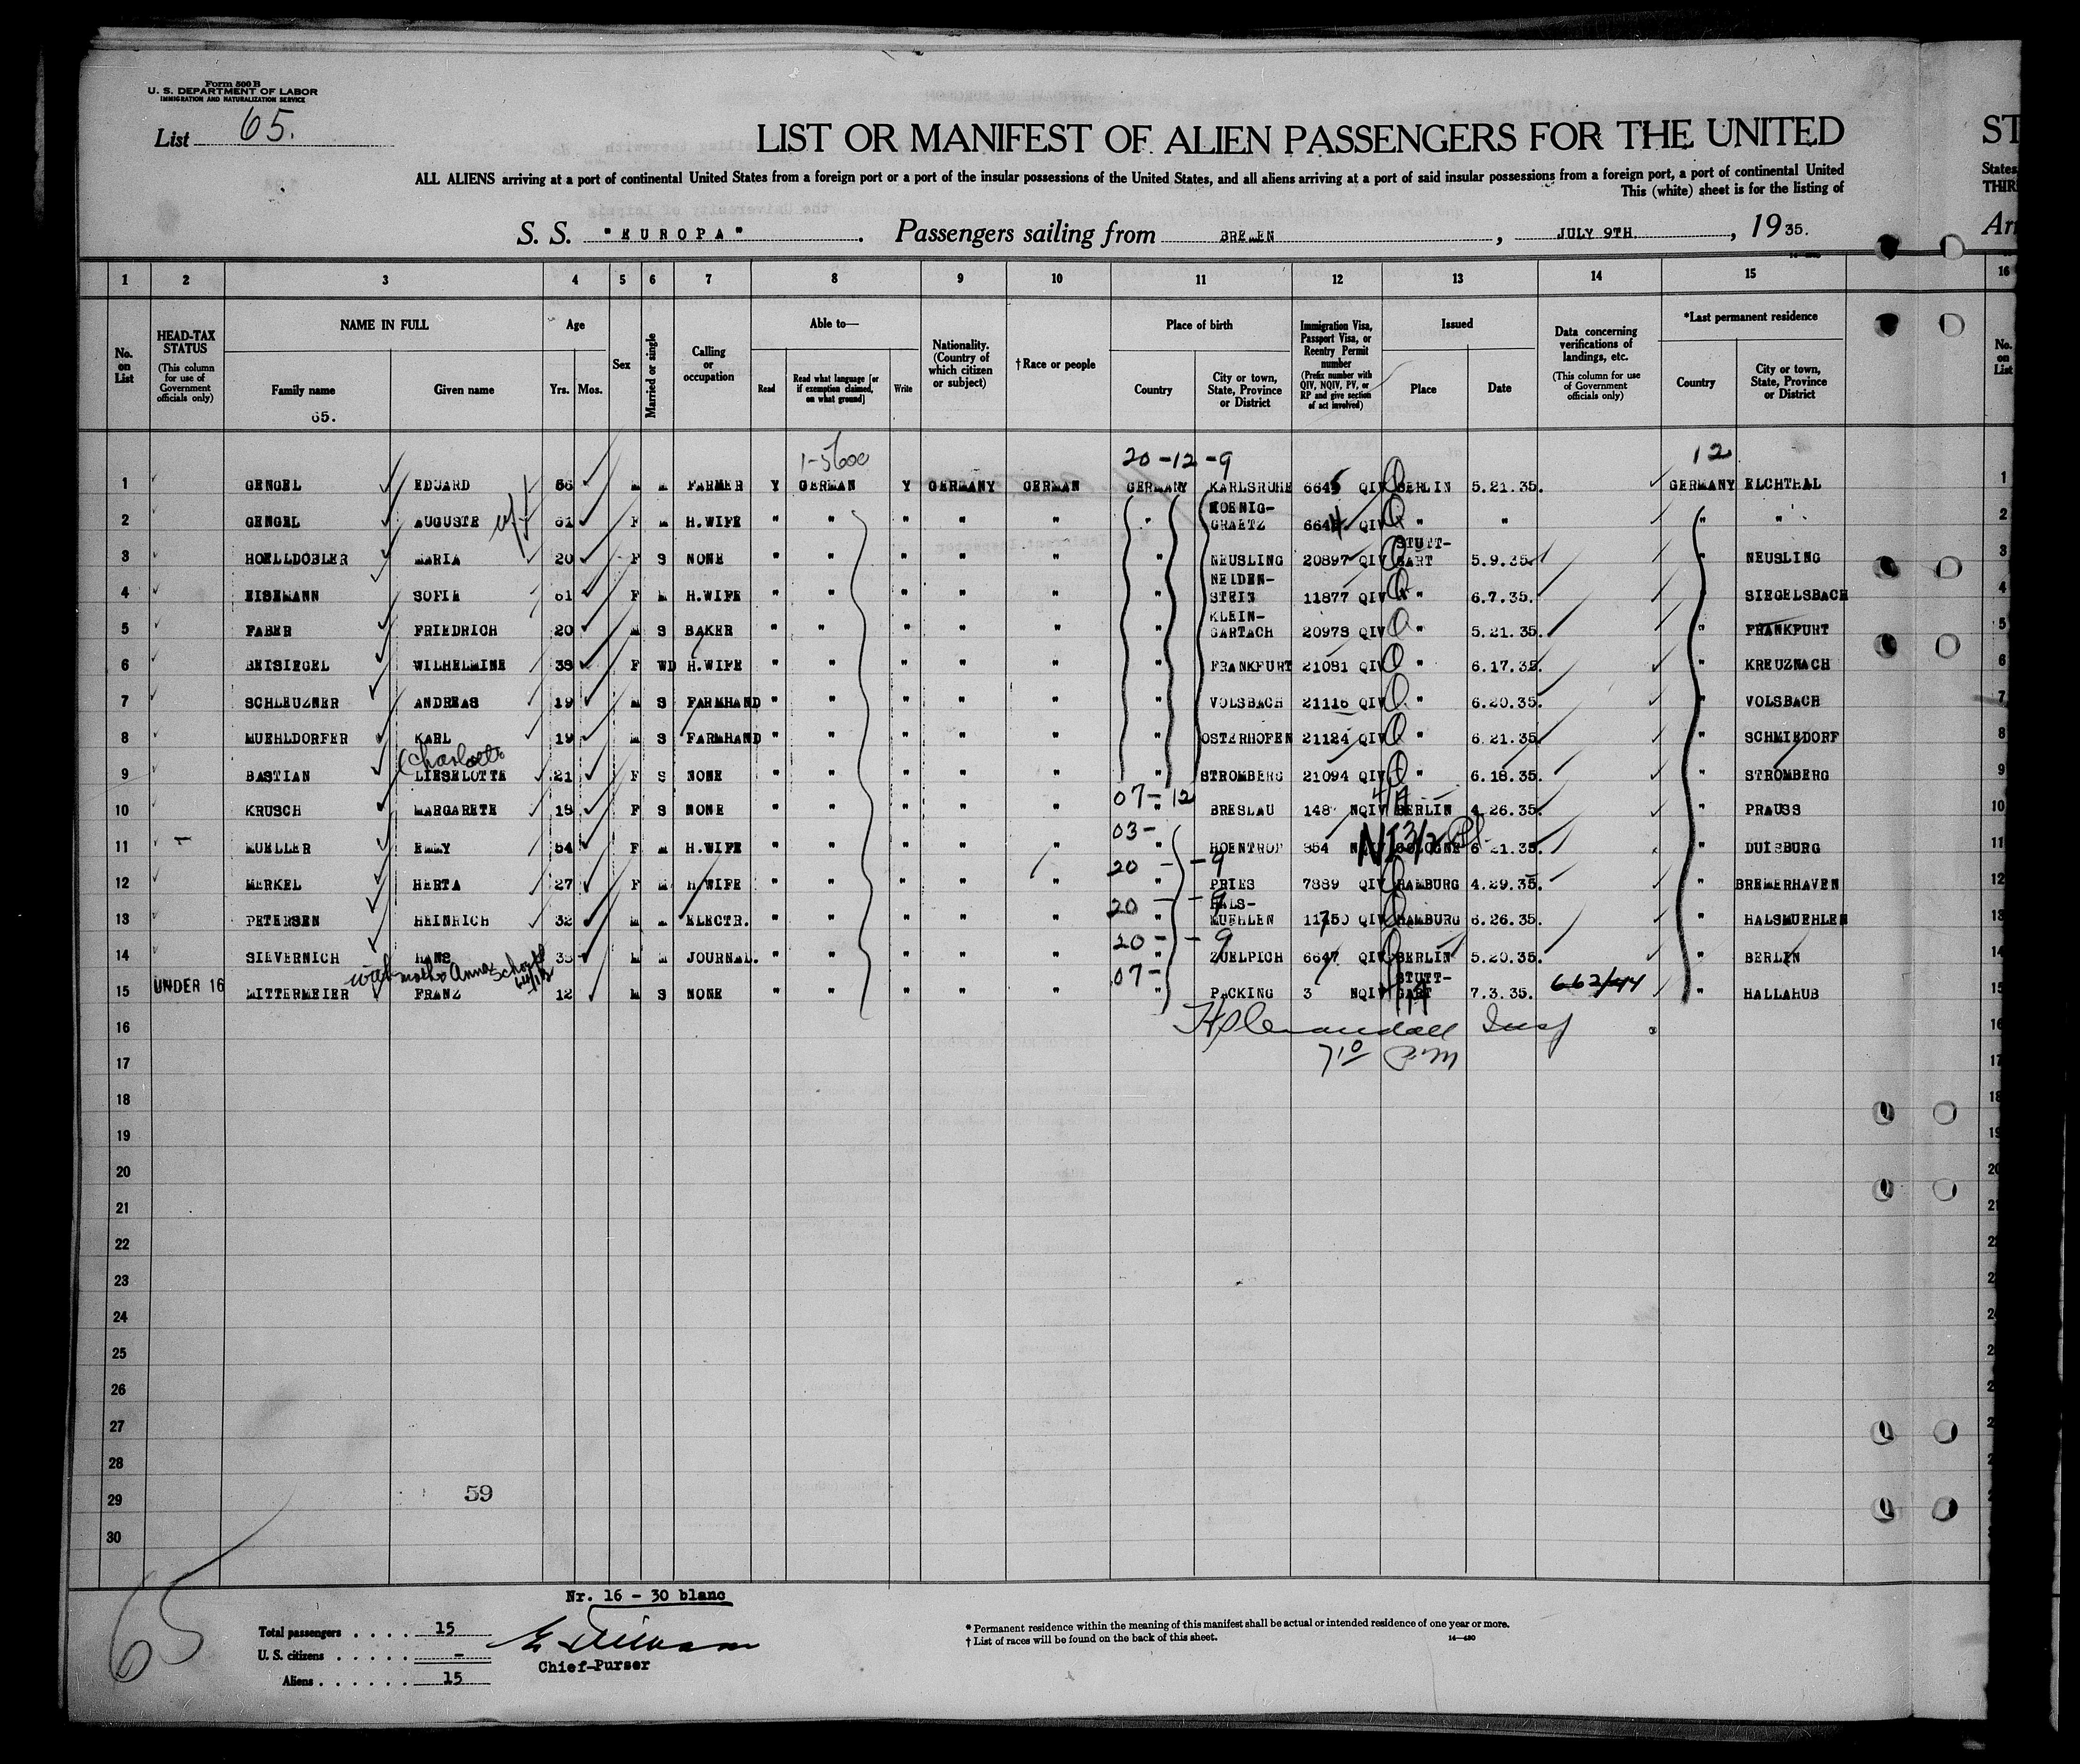 Form 500 B
U. S. DEPARTMENT OF LABOR
IMMIGRATION AND NATURALIZATION SERVICE
List 65.
LIST OR MANIFEST OF ALIEN PASSENGERS FOR THE UNITED ST
ALL ALIENS arriving at a port of continental United States from a foreign port or a port of the insular possessions of the United States, and all aliens arriving at a port of said insular possessions from a foreign port, a port of continental United States
This (white) sheet is for the listing of THIR
S. S. "EUROPA". Passengers sailing from BREMEN, JULY 9TH, 1935. Arr
1 2 3 4 5 6 7 8 9 10 11 12 13 14 15 16
No. on List
HEAD-TAX STATUS (This column for use of Government officials only)
NAME IN FULL Family name Given name
65.
Age Yrs. Mos.
Sex
Married or single
Calling or occupation
Able to— Read Read what language [or if exemption claimed, on what ground] Write
Nationality. (Country of which citizen or subject)
†Race or people
Place of birth Country City or town, State, Province or District
Immigration Visa, Passport Visa, or Reentry Permit number (Prefix number with QIV, NQIV, PV, or RP and give section of act involved)
Issued Place Date
Data concerning verifications of landings, etc. (This column for use of Government officials only)
*Last permanent residence Country City or town, State, Province or District
No. on List
1-5600 20-12-9 12
1 GENGEL EDUARD 56 M M FARMER Y GERMAN Y GERMANY GERMAN GERMANY KARLSRUHE 6645 QIV BERLIN 5.21.35. GERMANY ELCHTHAL 1
2 GENGEL AUGUSTE wf 61 F M H.WIFE " " " " " " KOENIG-GRAETZ 6644 QIV " " " " 2
3 HOELLDOBLER MARIA 20 F S NONE " " " " " " NEUSLING 20897 QIV STUTT-GART 5.9.35. " NEUSLING 3
4 EISEMANN SOFIE 61 F M H.WIFE " " " " " " NEIDEN-STEIN 11877 QIV " 6.7.35. " SIEGELSBACH 4
5 FABER FRIEDRICH 20 M S BAKER " " " " " " KLEIN-GARTACH 20973 QIV " 5.21.35. " FRANKFURT 5
6 BEISIEGEL WILHELMINE 38 F WD H.WIFE " " " " " " FRANKFURT 21081 QIV " 6.17.35. " KREUZNACH 6
7 SCHLEUZNER ANDREAS 19 M S FARMHAND " " " " " " VOLSBACH 21116 QIV " 6.20.35. " VOLSBACH 7
8 MUEHLDORFER KARL 19 M S FARMHAND " " " " " " OSTERHOFEN 21124 QIV " 6.21.35. " SCHMIEDORF 8
Charlotte
9 BASTIAN LIESELOTTE 21 F S NONE " " " " " " STROMBERG 21094 QIV " 6.18.35. " STROMBERG 9
07-12
10 KRUSCH MARGARETE 18 F S NONE " " " " " " BRESLAU 148 NQIV BERLIN 4.26.35. " PRAUSS 10
03-
11 MUELLER EMMY 54 F M H.WIFE " " " " " " HOENTROP 354 COLOGNE 6.21.35. " DUISBURG 11
20 - -9
12 MERKEL HERTA 27 F M H.WIFE " " " " " " PRIES 7889 QIV HAMBURG 4.29.35. " BREMERHAVEN 12
20 - -9
13 PETERSEN HEINRICH 32 M M ELECTR. " " " " " " HALS-MUEHLEN 11750 QIV HAMBURG 6.26.35. " HALSMUEHLEN 13
20 - -9
14 SILVERNICH HANS 35 M M JOURNAL. " " " " " " ZUELPICH 6647 QIV BERLIN 5.20.35. " BERLIN 14
with mother Anna 07-
15 UNDER 16 MITTERMEIER FRANZ 12 M S NONE " " " " " " PACKING 3 NQIV STUTT-GART 7.3.35. 662/44 " HALLAHUB 15
16 Insp
17 7 10 P.M. 17
18 18
19 19
20 20
21
22
23
24
25
26
27
28
29 59
30
65
Nr. 16 - 30 blanc
Total passengers . . . . 15
U. S. citizens . . . . . –
Aliens . . . . . . 15
Chief-Purser
* Permanent residence within the meaning of this manifest shall be actual or intended residence of one year or more.
† List of races will be found on the back of this sheet. 14—430